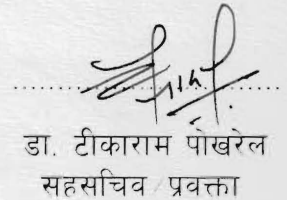 डा. टीकाराम पोखरेल
सहसचिव / प्रवक्ता